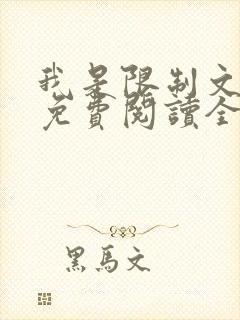 我是限制文
免費閱讀全
黑馬文